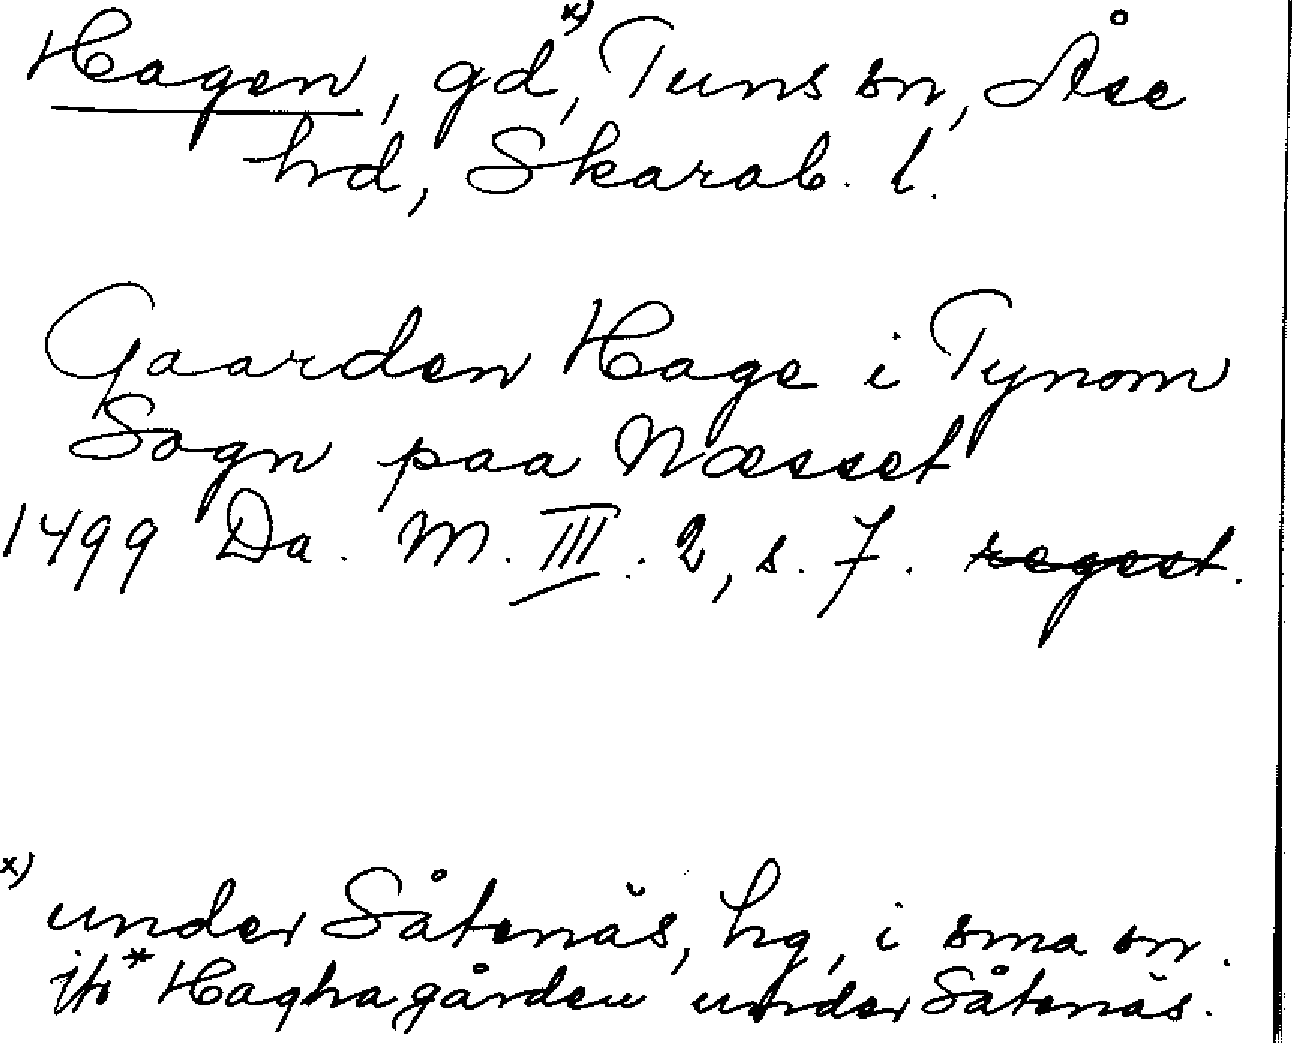 Hagen, gd,ˣ⁾ Tuns sn, Åse
hd, Skarab. l.
Gaarden Hage i Tynom
Sogn paa Næsset
1499 Da. M. III. 2, s. 7. regest.
x) under Såtenäs, hg, i sma sn.
jfr *Haghagården under Såtenäs.